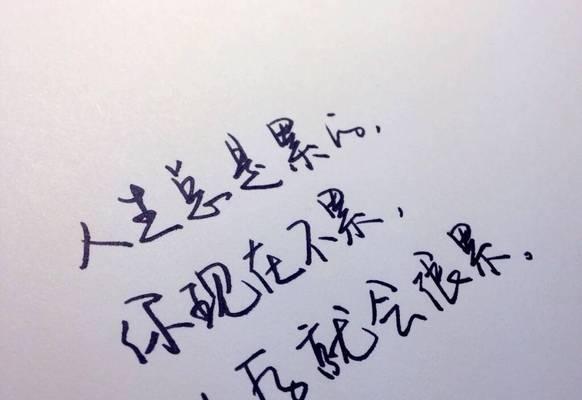 人生总是累的,
你现在不累,
后就会很累。